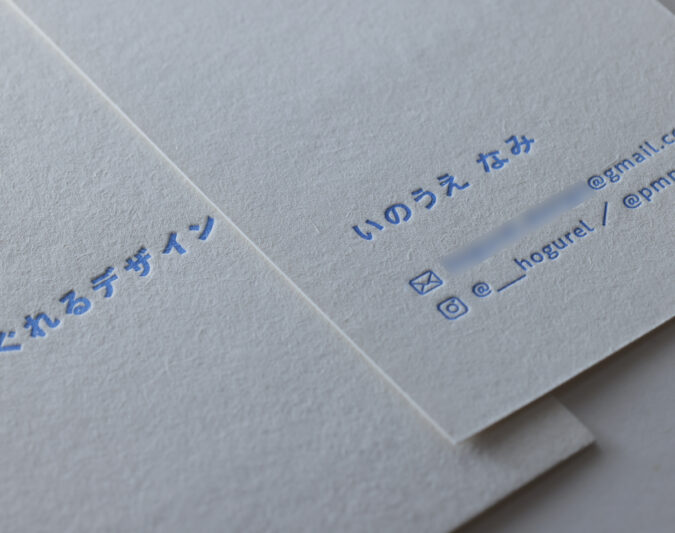 ぐれるデザイン
いのうえ なみ
@gmail.c
@__hogurel / @pmp